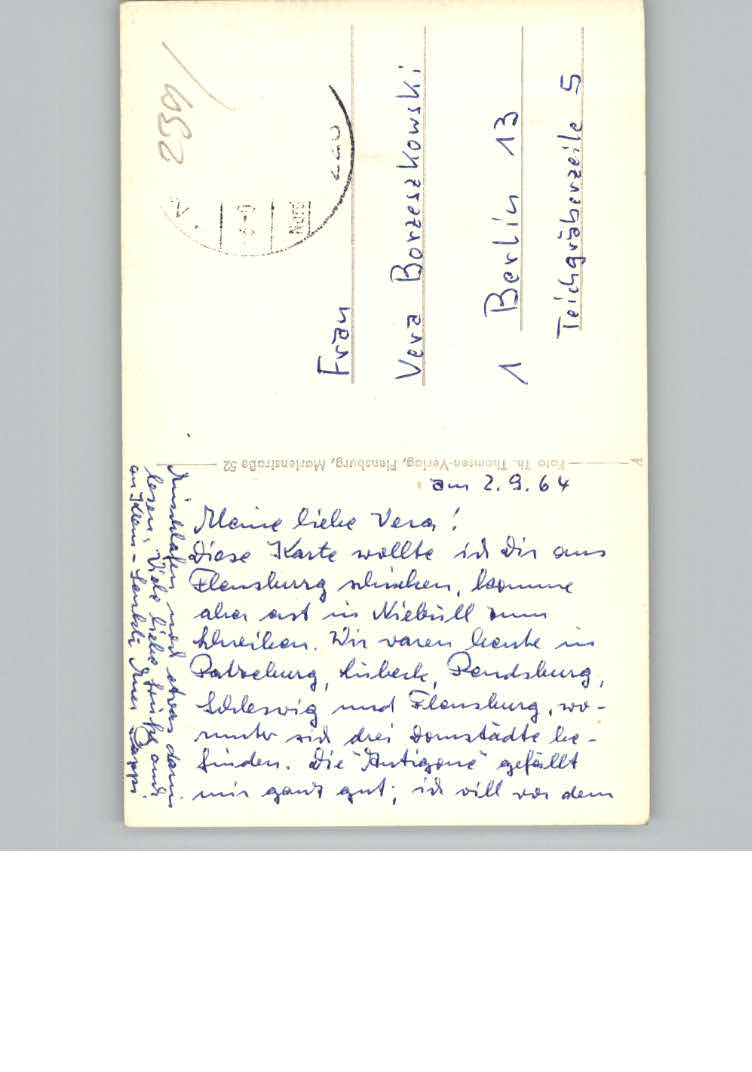 am 2.9.64
Meine liebe Vera!
Diese Karte wollte ich Dir aus
Flensburg schicken, komme
aber erst in Niebüll zum
Schreiben. Wir waren heute in
Ratzeburg, Lübeck, Rendsburg,
Schleswig und Flensburg, wo-
runter sich drei Domstädte be-
finden. Die "Antigone" gefällt
mir ganz gut; ich will vor dem
Einschlafen noch etwas darin
lesen. Viele liebe Grüße auch
an Klaus-
Foto Th. Thomsen-Verlag, Flensburg, Marienstraße 52
Frau
Vera Borzeszkowski
1 Berlin 13
Teichgräberzeile 5